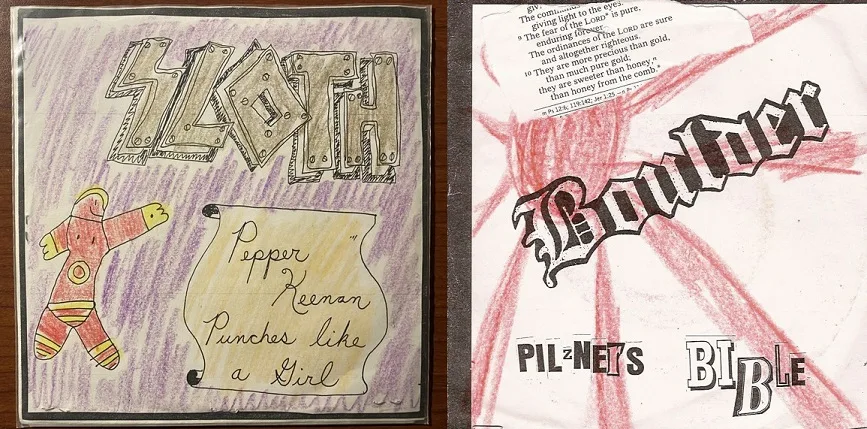 SLOTH
Pepper "
Keenan
Punches like
a Girl
The comm
giving light to the eyes.
9 The fear of the LORD is pure,
enduring forever.
The ordinances of the LORD are sure
and altogether righteous.
10 They are more precious than gold,
than much pure gold;
they are sweeter than honey,
than honey from the comb."
Ps 12:6; 119:142; Jer 1:25
Boulder
PILzNER'S
BIBLE